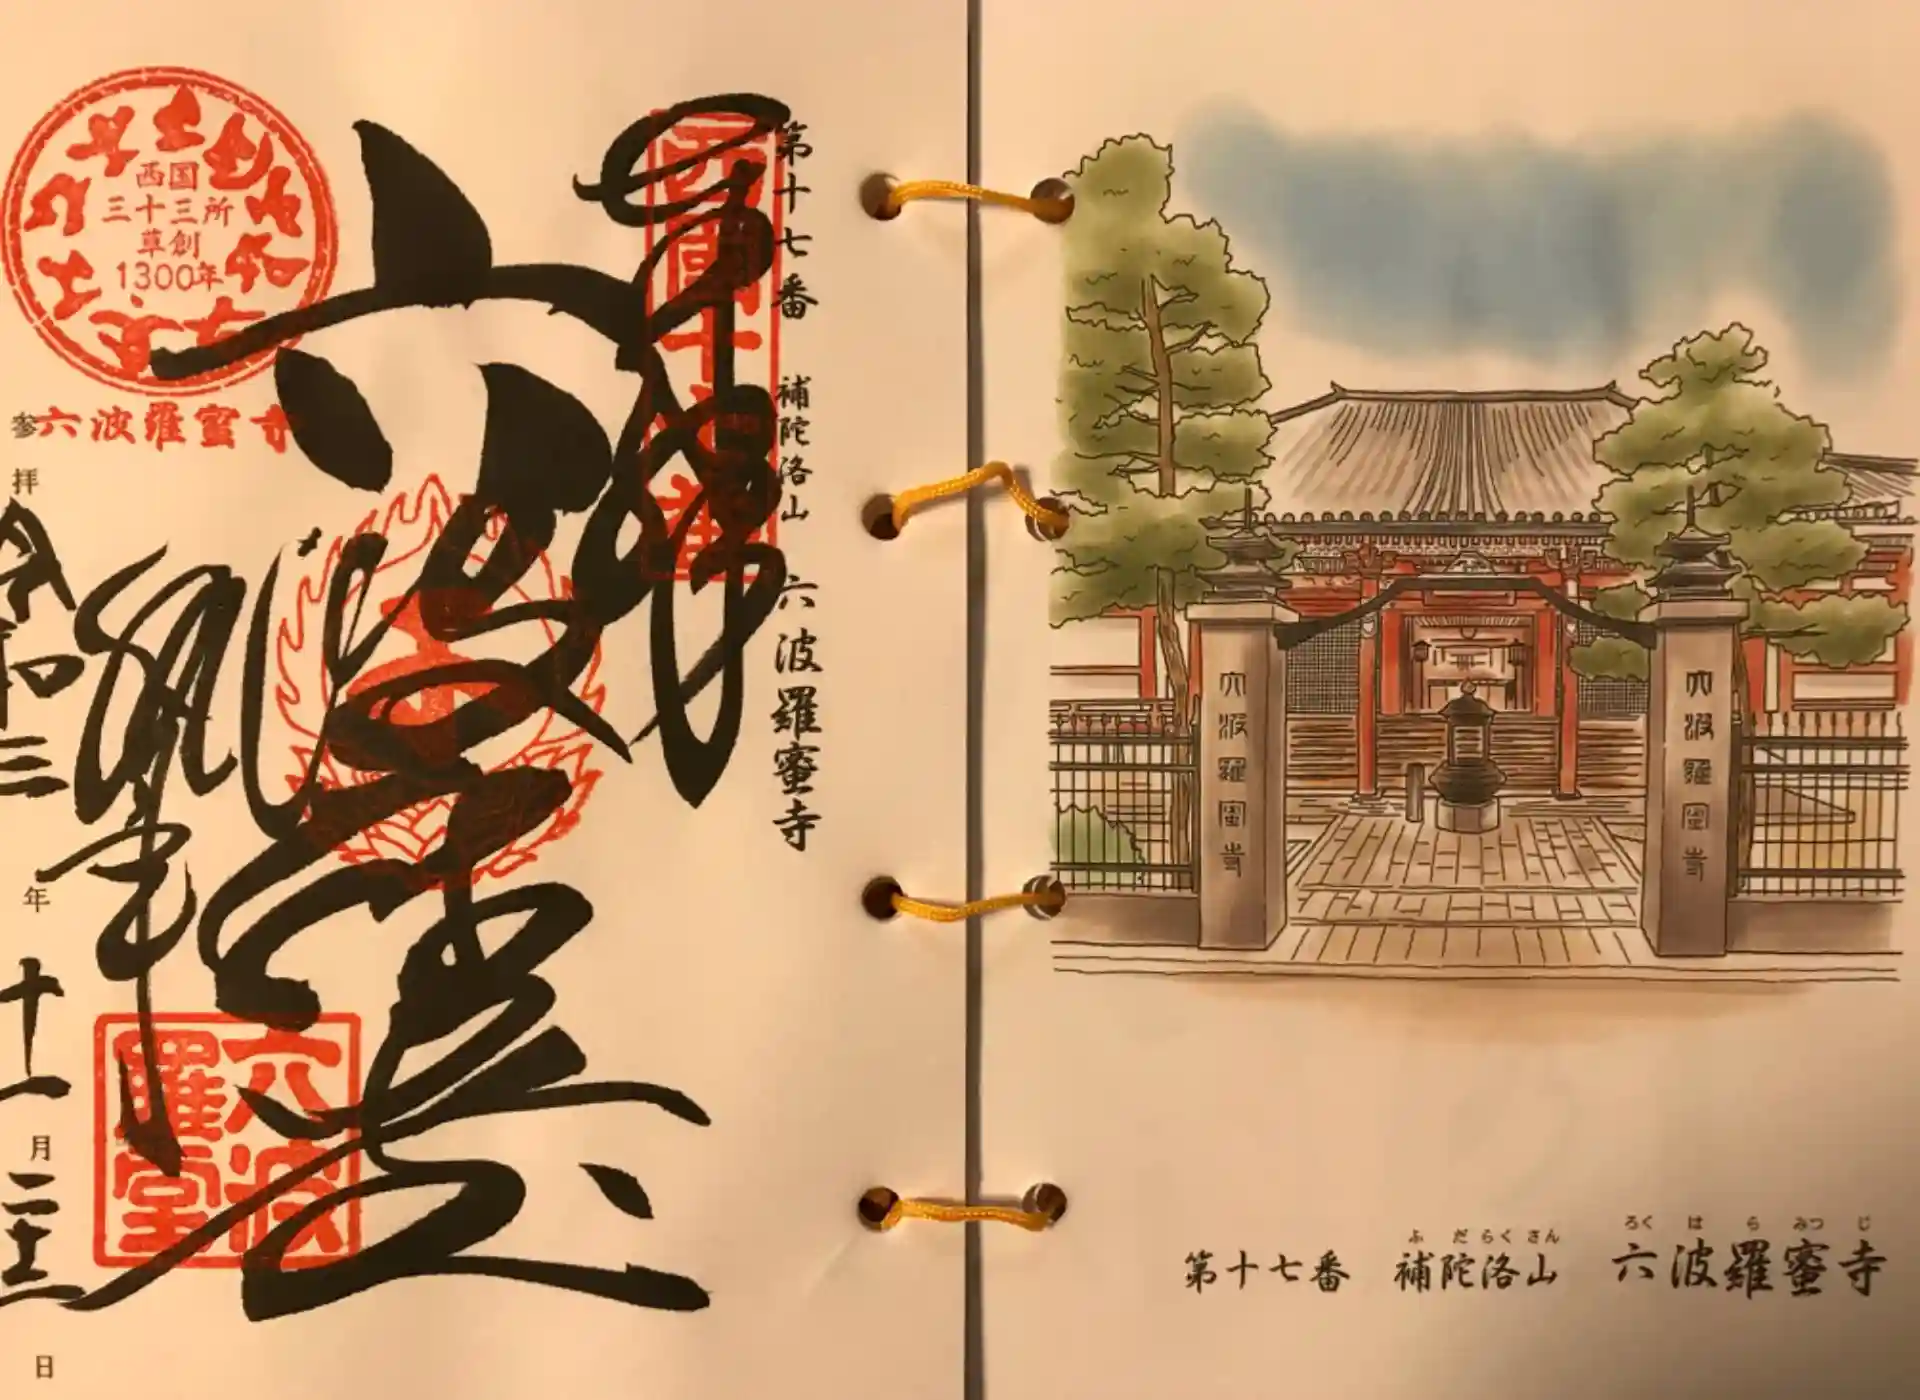 第十七番 補陀洛山 六波羅蜜寺
西國十七番
奉拝
六波羅堂
六波羅蜜寺
令和三年十一月二十三日
西国
三十三所
草創
1300年
六波羅蜜寺
六波羅堂
六波羅蜜寺
六波羅蜜寺
ふだらくさん ろくはらみつじ
第十七番 補陀洛山 六波羅蜜寺